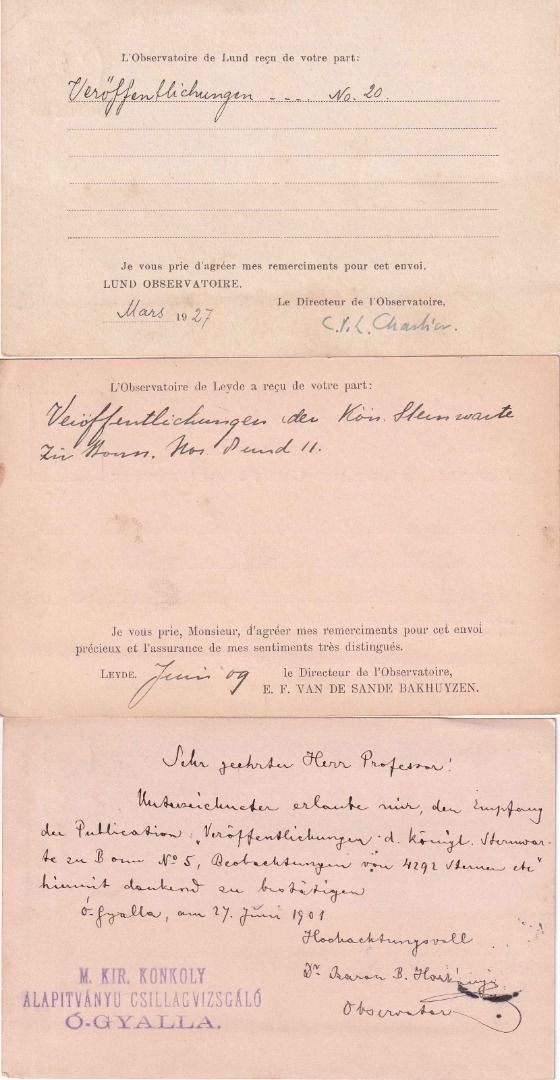 L'Observatoire de Lund reçu de votre part:
Veröffentlichungen - - - . No. 20.
Je vous prie d'agréer mes remerciments pour cet envoi.
LUND OBSERVATOIRE.
Le Directeur de l'Observatoire,
Mars 1927
C.V.L. Charlier.
L'Observatoire de Leyde a reçu de votre part:
Veröffentlichungen der Kön. Sternwarte
zu Bonn. Nos. 8 und 11.
Je vous prie, Monsieur, d'agréer mes remerciments pour cet envoi
précieux et l'assurance de mes sentiments très distingués.
LEYDE. Juni 09 le Directeur de l'Observatoire,
E. F. VAN DE SANDE BAKHUYZEN.
Sehr geehrter Herr Professor!
Unterzeichneter erlaube mir, den Empfang
der Publication: „Veröffentlichungen d. königl. Sternwar-
te zu Bonn No 5, Beobachtungen von 4292 Sternen etc“
hiermit dankend zu bestätigen
Ó-Gyalla, am 27. Juni 1901
Hochachtungsvoll
Dr Baron B. Harkányi
Observator
M. KIR. KONKOLY
ALAPITVÁNYU CSILLAGVIZSGÁLÓ
Ó-GYALLA.